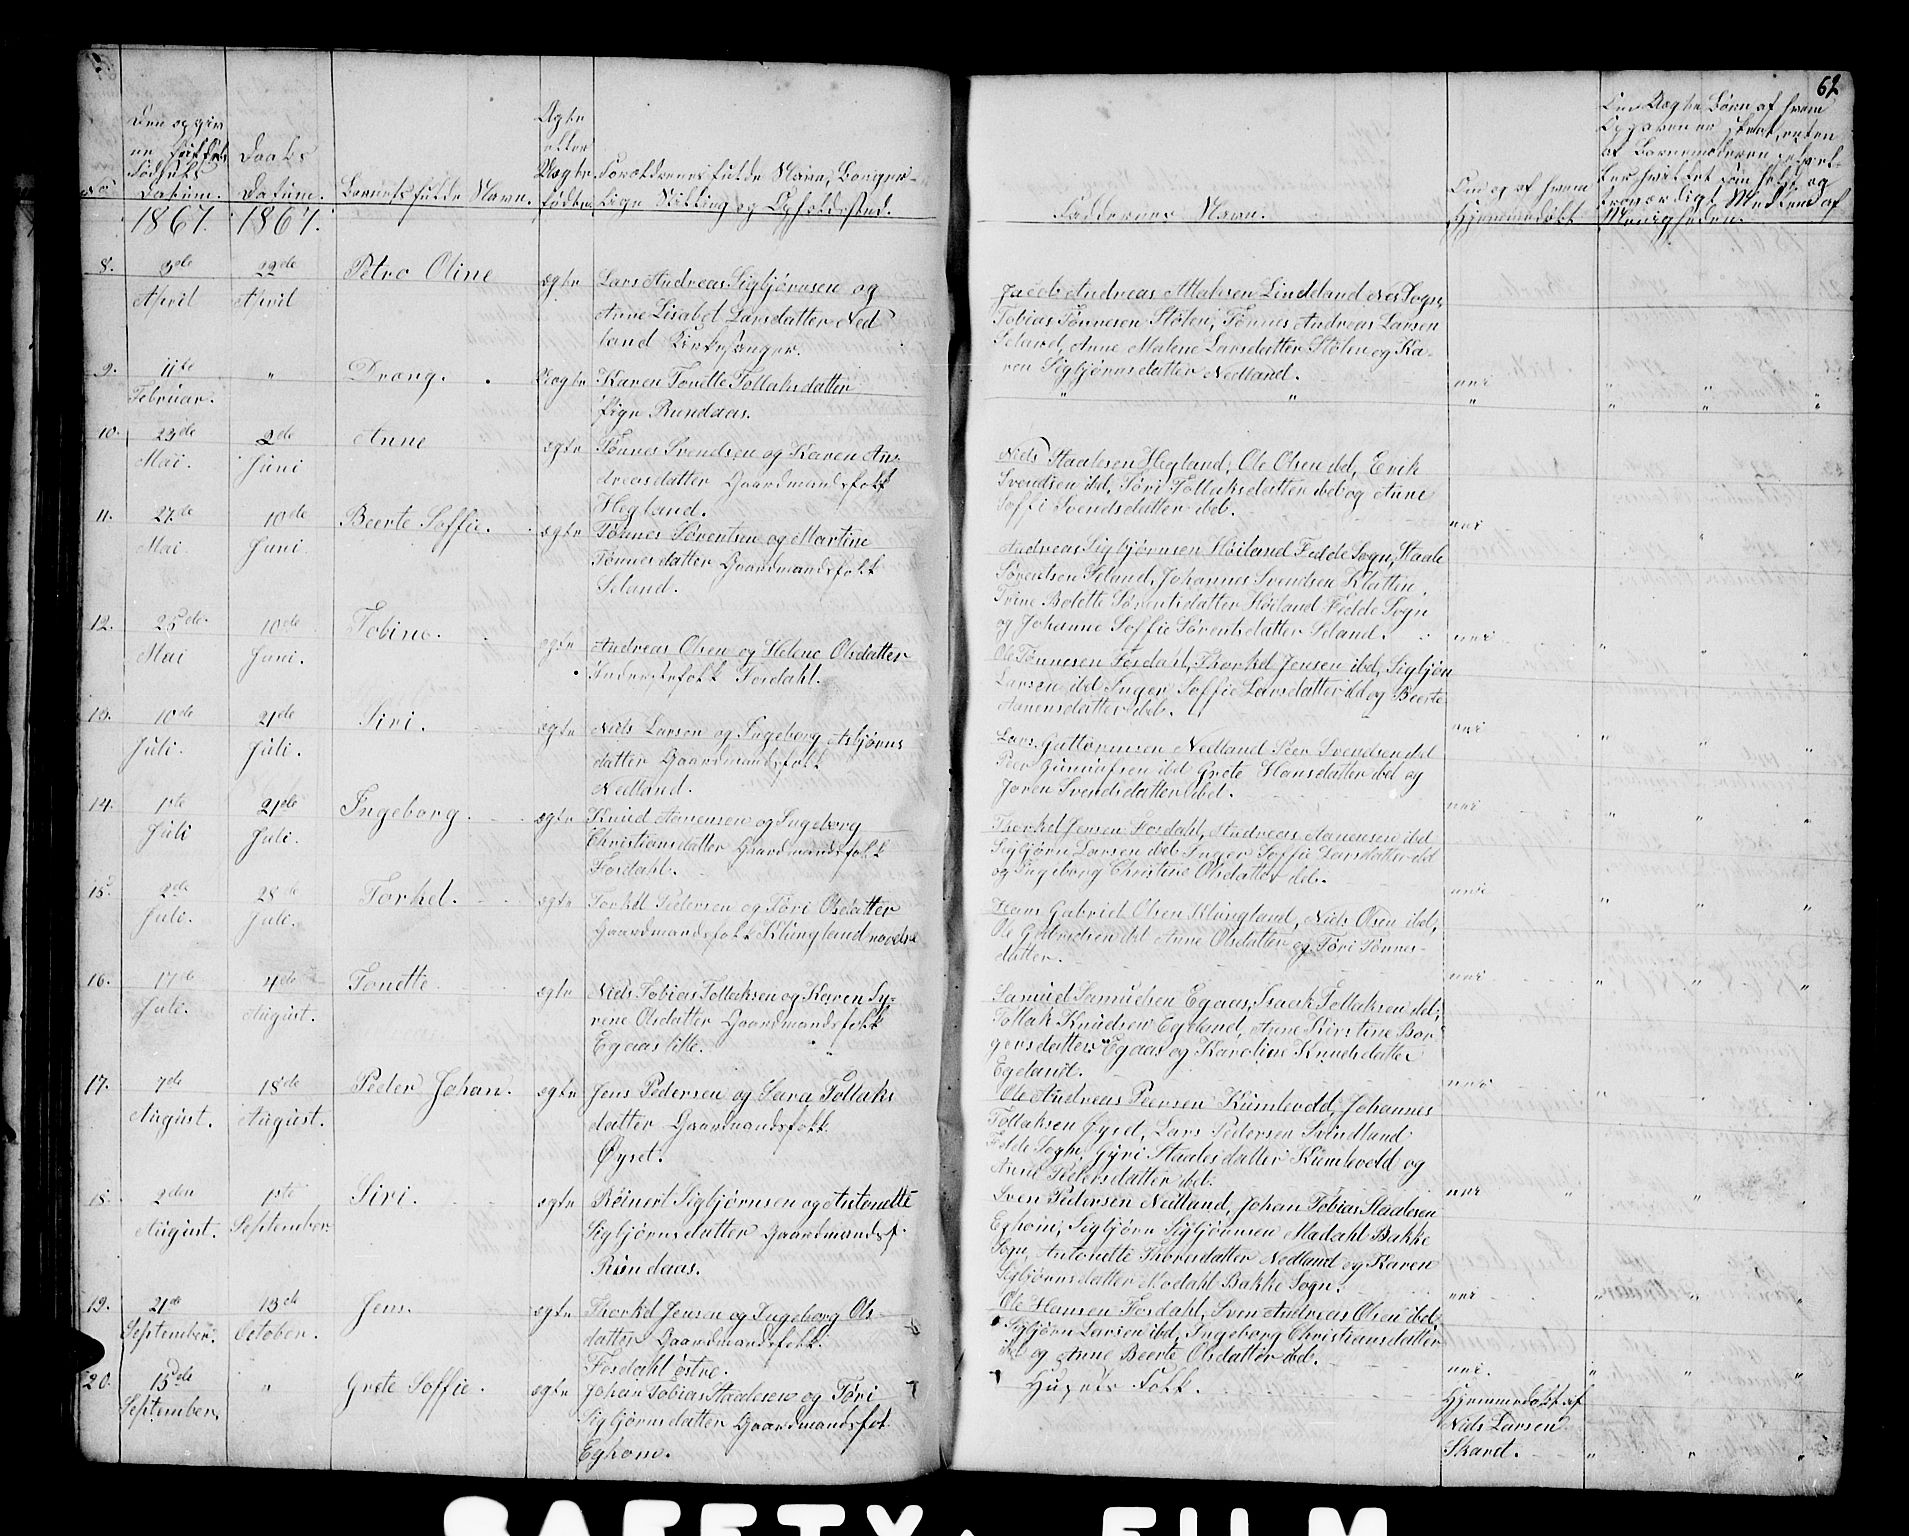 62
Den opgiv
Fødsels
Datum.
Daabs
Datum.
Barnets fulde Navn.
Ægte
eller
Uægte
født.
Forældrenes fulde Navn, Borger-
lige Stilling og Opholdssted.
Faddernes Navn.
Om og af hvem
Hjemmedøbt
No
1867. 1867.
8. 3de April
22de April
Petro Oline
ægte
Lars Andreas Sigbjørnsen og
Anne Lisabet Larsdatter Ned
land Kirkesanger.
Jacob Andreas Madsen Lindeland Nes Sogn,
Tobias Tønnesen Stølen, Tønnes Andreas Larsen
Seland, Anne Malene Larsdatter Stølen og Ka-
ren Sigbjørnsdatter Nedland.
nei
9. 11te Februar.
"
Dreng.
Uægte
Karen Tonette Tollaksdatter
Pige Rundaas.
" "
10. 23de Mai.
2de Juni
Anne
ægte
Tønnes Svendsen og Karen An-
dreasdatter Gaardmandsfolk
Hegland.
Niels Staalesen Hegland, Ole Olsen ibd, Erik
Svendsen ibd, Tøri Tollaksdatter ibd og Anne
Soffi Svendsdatter ibd.
nei
11. 27de Mai
10de Juni
Beerte Soffie.
ægte
Tønnes Sørentsen og Martine
Tønnesdatter Gaardmandsfolk
Seland.
Andreas Sigbjørnsen Høiland Fedde Sogn, Staale
Sørentsen Seland, Johannes Svendsen Kletten,
Trine Bolette Sørentsdatter Høiland Fedde Sogn
og Johanne Soffie Sørentsdatter Seland.
nei
12. 25de Mai
10de Juni.
Tobine.
ægte
Andreas Olsen og Helene Olsdatter
Inderstefolk Fosdahl.
Ole Tønnesen Fosdahl, Thorkel Jensen ibd, Sigbjøn
Larsen ibd Inger Soffie Larsdatter ibd og Beerte
Aanensdatter ibd.
nei
13. 10de Juli.
21de Juli.
Siri.
ægte
Niels Larsen og Ingeborg Asbjørns
datter Gaardmandsfolk
Nedland.
Lars Guttormsen Nedland Peer Svendsen ibd
Peer Gunulfsen ibd Grete Hansdatter ibd og
Joren Svendsdatter ibd.
nei
14. 1ste Juli
21de Juli.
Ingeborg.
ægte
Knud Aanensen og Ingeborg
Christiansdatter Gaardmandsfolk
Fosdahl.
Thorkel Jensen Fosdahl, Andreas Aanensen ibd
Sigbjørn Larsen ibd Inger Soffie Larsdatter ibd
og Ingeborg Christine Olsdatter ibd.
nei
15. 2de Juli.
28de Juli.
Torkel.
ægte
Torkel Pedersen og Tøri Olsdatter
Gaardmandsfolk Klungland
Hans Gabriel Olsen Klungland, Niels Olsen ibd,
Ole Gabrielsen ibd Anne Olsdatter og Tøri Tønnes-
datter.
nei
16. 17de Juli.
4de August.
Tonette
ægte
Niels Tobias Tollaksen og Karen Sy-
rene Olsdatter Gaardmandsfolk
Egaas lille.
Samuel Samuelsen Egaas, Isaak Tollaksen ibd,
Tollak Knudsen Egeland, Anne Kirstine Bor-
gersdatter Egaas og Karoline Knudsdatter
Egeland.
nei
17. 7de August.
18de August.
Peder Johan.
ægte
Jens Pedersen og Sara Tollaks
datter Gaardmandsfolk
Øyset.
Ole Andreas Peersen Kumlevold, Johannes
Tollaksen Øyset, Lars Pedersen Svindland
Fedde Sogn, Gyri Staalesdatter Kumlevold og
Anne Pedersdatter ibd.
nei
18. 2den August.
1ste September.
Siri.
ægte
Reinert Sigbjørnsen og Antonette
Sigbjørnsdatter Gaardmandsf.
Rundaas.
Sven Pedersen Nedland, Johan Tobias Staalesen
Eghom, Sigbjørn Sigbjørnsen Modahl Bakke
Sogn, Antonette Thoresdatter Nedland og Karen
Sigbjørnsdatter Modahl Bakke Sogn.
nei
19. 21de September.
13de October.
Jens.
ægte
Thorkel Jensen og Ingeborg Ols-
datter Gaardmandsfolk
Fosdahl østre.
Ole Hansen Fosdahl, Sven Andreas Olsen ibd
Sigbjørn Larsen ibd, Ingeborg Christiansdatter
ibd og Anne Beerte Olsdatter ibd.
nei.
20. 15de September.
"
Grete Soffie.
ægte
Johan Tobias Staalesen og Tøri
Sigbjørnsdatter Gaardmandsfol
Eghom.
Husets Folk.
Hjemmedøbt af
Niels Larsen
Skaret.
SAFETY FILM